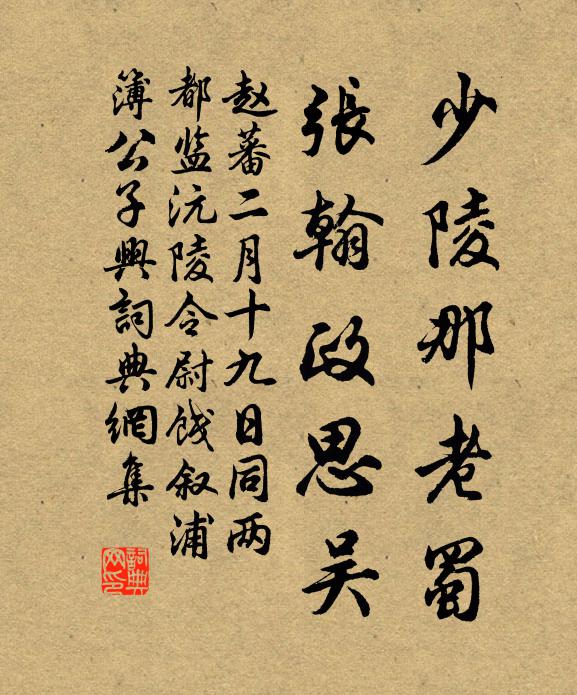 少陵那老蜀
張翰政思吴
赵蕃二月十九日同两
都监沅陵令尉饯叙浦
簿公子興詞典網集
詞典网印